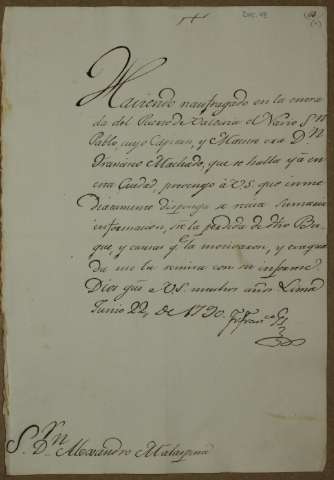 Haviendo naufragado en la ensena
da del Puerto de Valparaiso el Navio Sn
Pablo, cuyo Capitan, y Maestre era Dn
Francisco Machado, que se halla yá en
esta Ciudad, prevengo á VS. que inme
diatamente disponga se reciva Sumaria
informacion, de la perdida de dho Bu
que, y causas qe la motivaron, y evaqua
da me la remita con su informe.
Dios gue a VS. muchos años Lima
Junio 22, de 1790.
Sor Dn Alexandro Malaspina